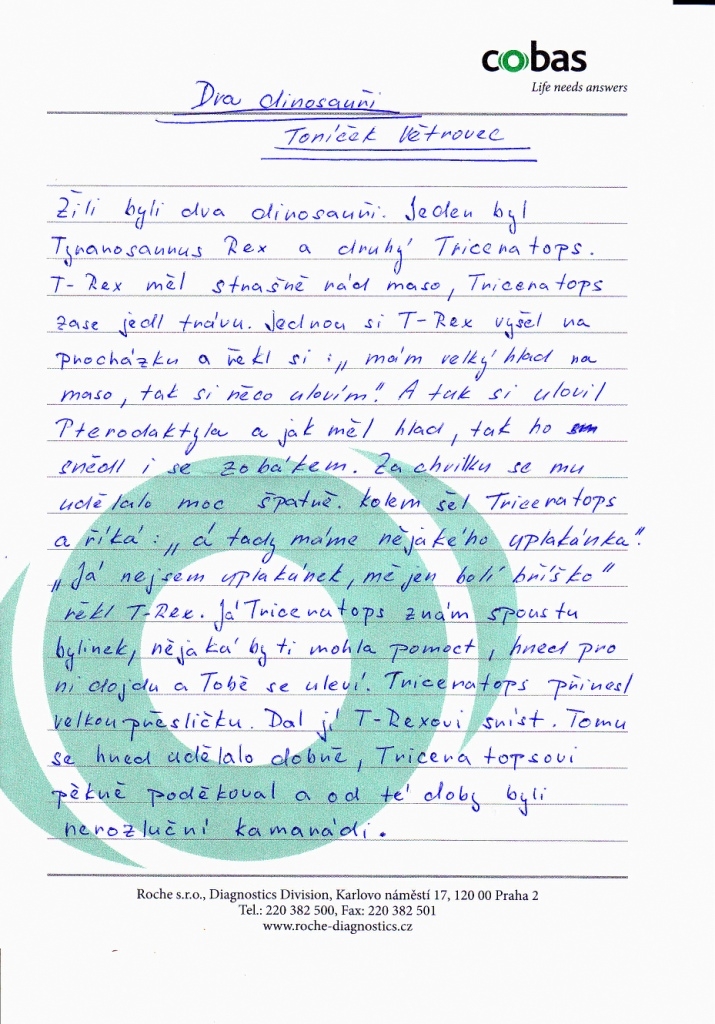 cobas
Life needs answers
Dva dinosauři
Toníček Větrovec
Žili byli dva dinosauři. Jeden byl
Tyranosaurus Rex a druhý Triceratops.
T-Rex měl strašně rád maso, Triceratops
zase jedl trávu. Jednou si T-Rex vyšel na
procházku a řekl si : „ mám velký hlad na
maso, tak si něco ulovím". A tak si ulovil
Pterodaktyla a jak měl hlad, tak ho
snědl i se zobákem. Za chvilku se mu
udělalo moc špatně. Kolem šel Triceratops
a říká : „ á tady máme nějakého uplakánka".
„Já nejsem uplakánek, mě jen bolí bříško"
řekl T-Rex. Já Triceratops znám spoustu
bylinek, nějaká by ti mohla pomoct, hned pro
ni dojdu a Tobě se uleví. Triceratops přinesl
velkou přesličku. Dal jí T-Rexovi sníst. Tomu
se hned udělalo dobře, Triceratopsovi
pěkně poděkoval a od té doby byli
nerozluční kamarádi.
Roche s.r.o., Diagnostics Division, Karlovo náměstí 17, 120 00 Praha 2
Tel.: 220 382 500, Fax: 220 382 501
www.roche-diagnostics.cz